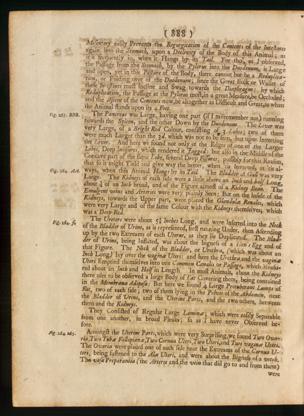 ( 888 )
Mesentery easily Prevents the Regurgitation of the Contents of the Intestines
again into the Stomach, upon a Declivity of the Body of this Animal, as
it's frequently so, when it Hangs by its Tail. For thus, as I observed,
the Passage from the Stomach, by the Pylorus into the Duodenum, is Large
and open, yet in this Posture of the Body, there cannot but be a Reduplica-
tion, or Folding over of the Duodenum, since the Great Balk or Waste of
these Intestines must incline and Swag towards the Diaphragme, by which
Reduplication, the Passage at the Pylorus must in a great Measure, be Occluded;
and the Ascent of the Contents now, be altogether as Difficult and Great, as when
the Animal stands upon its Feet.
Fig. 283. BBB. The Pancreas was Large, having one part (if I remember not) running
towards the Spleen, and the other Down by the Duodenum. The Liver was
very Large, of a Bright Red Colour, consisting of 5 Lobes; two of them
were much Larger than the 3d, which was not so big, but quite Investing
the Liver. And here we found not only at the Edges of one of the Larger
Lobes, Deep Incisures, which rendered it Jagged; but also in the Middle of the
Concave part of these Lobe, several Deep Fissures; possibly for this Reason,
that so it might Yield and give way the better, when the Intestines in that
ways, when this Animal Hangs by its Tail. The Bladder of Gall was very
Fig. 284. AA. Large. The Kidneys of each side were a little above an Inch and half Long,
about ¾ of an Inch broad, and of the Figure almost of a Kidney Bean. The
Emulgent veins and Arteries were very plainly Seen; But on the Inside of the
Kidneys, towards the Upper part, were placed the Glandulæ Renales, which
were very Large and of the same Colour with the Kidneys themselves, which
was a Deep Red.
Fig. 284. ff. The Ureters were about 5¾ Inches Long, and were inserted into the Neck
of the Bladder of Urine, as is represented, first running Under, then Ascending
up by the two Extreams of each Uterus, as they lie Duplicated. The Blad-
der of Urine, being Inflated, was about the bigness of a Hen's Egg and of
that Figure. The Neck of the Bladder, or Urethra, (which was about an
Inch Long,) lay over the vaginæ Uteri; and here the Urethra and the vaginæ
Uteri Emptied themselves into one Common Canale or Passage, which thinks-
red about an Inch and Half in Length. In most Animals, about the Kidneys
there uses to be observed a large Body of Fat Covering them, being contained
in the Membrana Adiposa: But here we found 4 Large Protuberant Lumps of
Fat, two of each side; two of them lying in the Pelvis of the Abdomen, near
the Bladder of Urine, and the Uterine Parts, and the two others, between
them and the Kidneys.
They Consisted of Regular Large Laminæ; which were easily Separable
from one another, in broad Flexes: So as I have never Observed be-
fore.
Fig. 284. &85. Amongst the Uterine Parts, which were very Surprising, we found Two Ova-
ria, Two Tubæ Fallopianæ, Two Cornua Uteri, Two Uteri, and Two vaginæ Uteri.
The Ovaria were placed one of each Side near the Extreams of the Cornua U-
teri, being fastened to the Alæ Uteri, and were about the Bigness of a vetch.
The vasa Præparantia (the Arteria and the vein that did go to and from them)
were